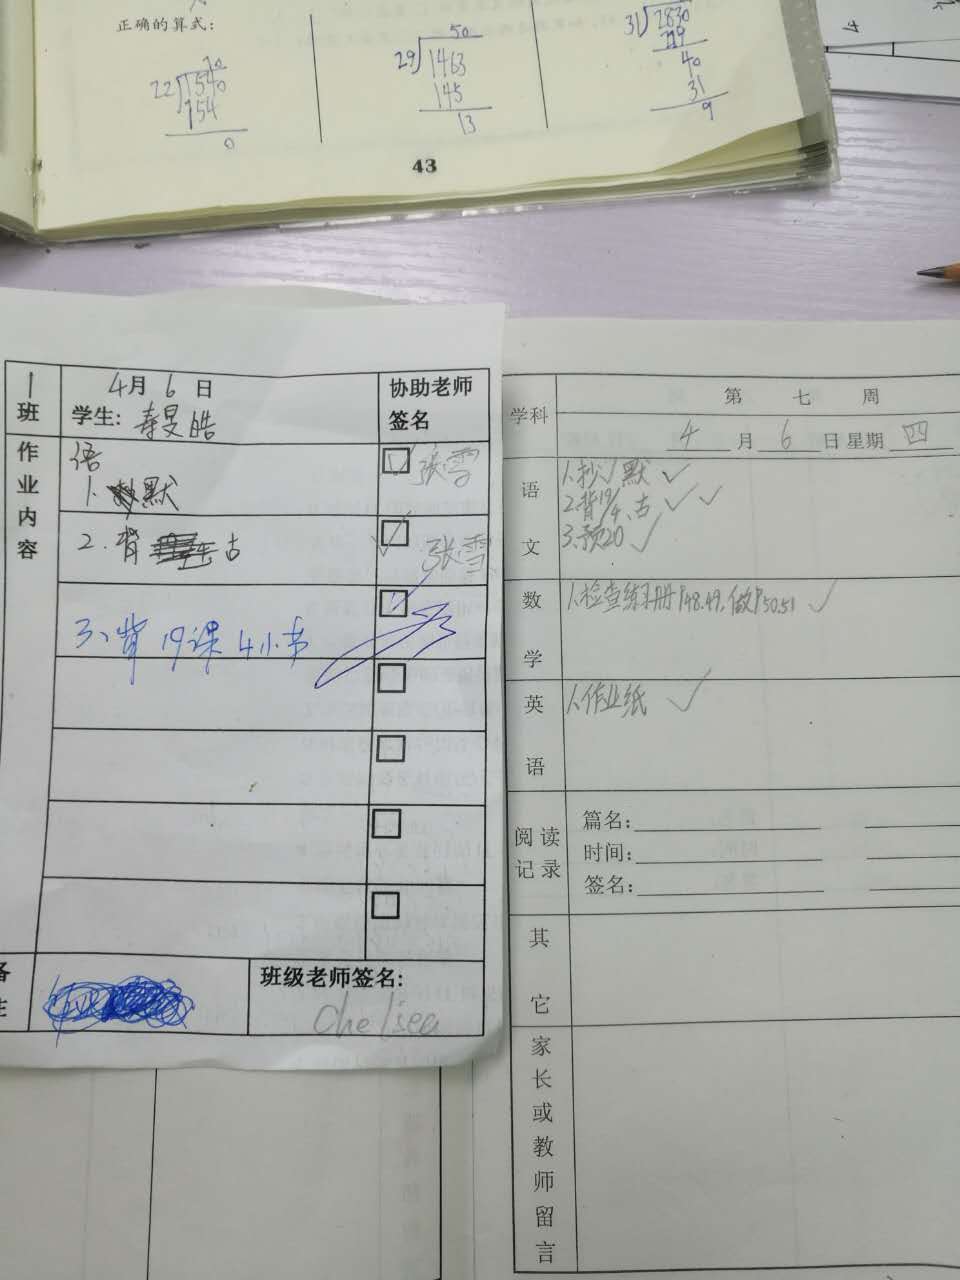 正确的算式:
70
22 1540
154
0
50
29 1463
145
13
31 2830
40
31
9
43
1班
4月6日
学生:
协助老师签名
作业内容
语
1.默
张雪
2.背古
张雪
3、背19课4小节
班级老师签名:
Chelsea
学科
第七周
4月6日星期四
语文
1.抄、默
2.背19/4、古
3.预20
数学
1.检查练习册P48.49,做P50.51
英语
1.作业纸
阅读记录
篇名:
时间:
签名:
其它
家长或教师留言